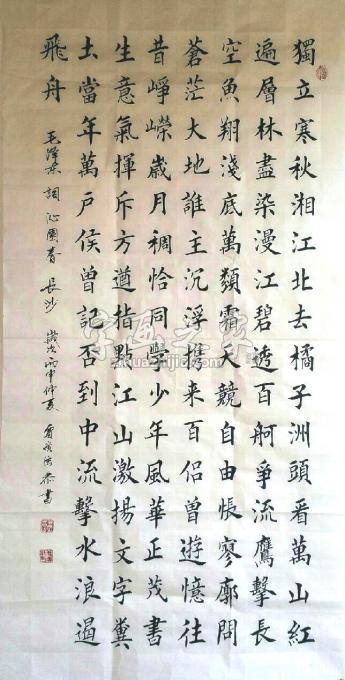 獨立寒秋湘江北去橘子洲頭看萬山紅
遍層林盡染漫江碧透百舸爭流鷹擊長
空魚翔淺底萬類霜天競自由悵寥廓問
蒼茫大地誰主沉浮携来百侣曾遊憶往
昔崢嶸歲月稠恰同學少年風華正茂書
生意氣揮斥方遒指點江山激揚文字糞
土當年萬戶侯曾記否到中流擊水浪遏
飛舟
毛澤東詞沁園春長沙
歲次丙申仲夏
恭書